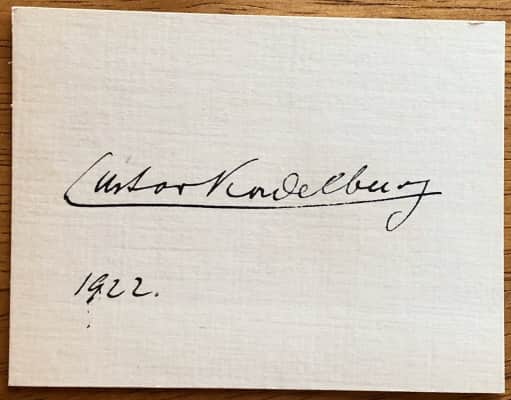 Gustav Nordelburg
1922.